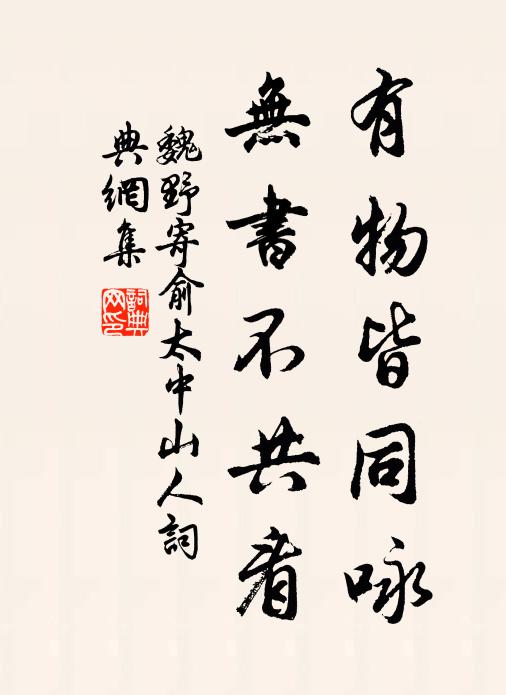 有物皆同咏
無書不共看
魏野寄俞太中山人詞
典網集
詞典
网印